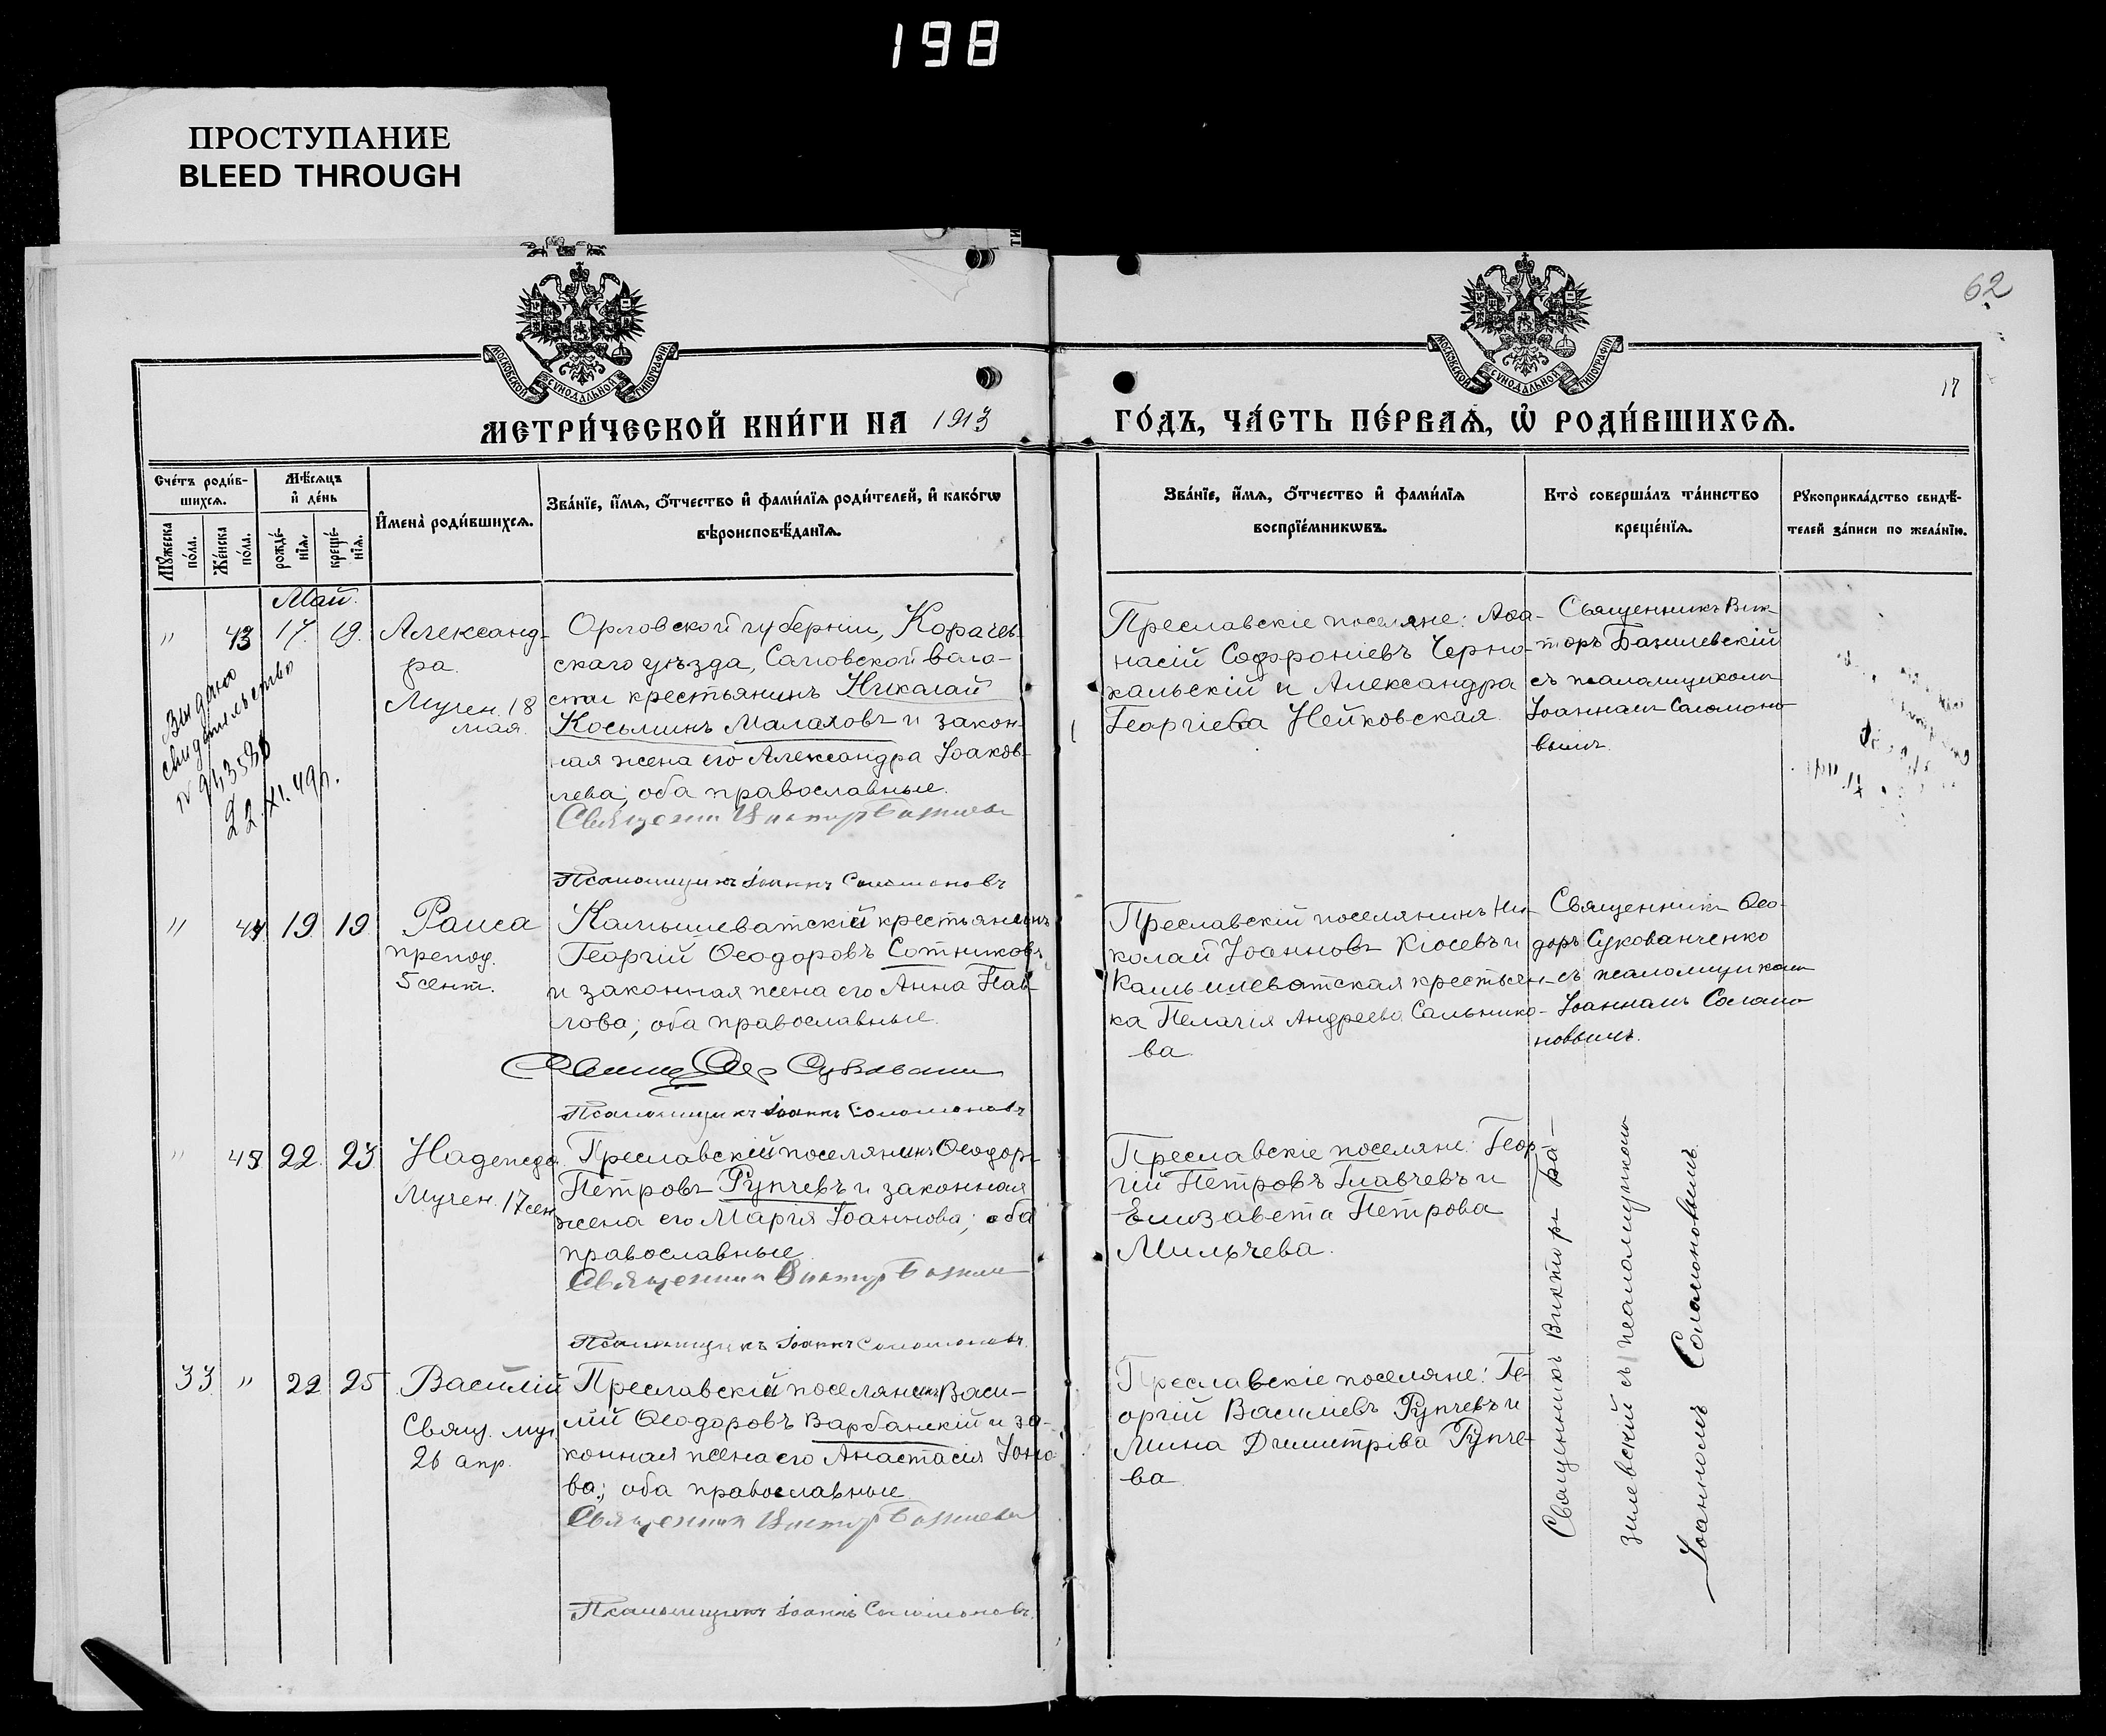 198
ПРОСТУПАНИЕ
BLEED THROUGH
62
17
МОСКОВСКОЙ СУНОДАЛЬНОЙ ТИПОГРАФІИ
МОСКОВСКОЙ СУНОДАЛЬНОЙ ТИПОГРАФІИ
МЕТРИ́ЧЕСКОЙ КНИ́ГИ НА 1913
ГО́ДЪ, ЧА́СТЬ ПЕ́РВАѦ, Ѡ҆ РОДИ́ВШИХСѦ.
Сче́тъ роди́в-
шихсѧ.
Мѣ́сѧцъ
и҆ де́нь
Мꙋ́жеска
по́ла.
Же́нска
по́ла.
рожде́-
нїѧ.
креще́-
нїѧ.
И҆мена̀ роди́вшихсѧ.
Зва́нїе, и҆́мѧ, ѻ҆́тчество и҆ фами́лїѧ роди́телей, и҆ како́гѡ
вѣроисповѣ́данїѧ.
Зва́нїе, и҆́мѧ, ѻ҆́тчество и҆ фами́лїѧ
воспрїе́мникѡвъ.
Кто̀ соверша́лъ та́инство
креще́нїѧ.
Рꙋкоприкла́дство свидѣ́-
телей за́писи по жела́нїю.
Май.
" 43 17. 19. Александ-
ра.
Мучен. 18
мая.
Выдано
свидетельство
22.XI.49г.
Орловской губерніи, Корачев-
скаго уѣзда, Саловской воло-
сти крестьянинъ Николай
Косьминъ Малаховъ и закон-
ная жена его Александра Іаков-
лева; оба православные.
Священник Виктор Базилев
Псаломщикъ Іоаннъ Соломоновъ
Преславскіе поселяне: Аѳа-
насій Софроніевъ Черно-
кальскій и Александра
Георгіева Нейковская.
Священникъ Вик-
торъ Базилевскій
съ псаломщикомъ
Іоанномъ Соломоно-
вымъ.
" 44 19. 19. Раиса
препод.
5 сент.
Камышеватскій крестьянинъ
Георгій Ѳеодоровъ Сотниковъ
и законная жена его Анна Пав-
лова; оба православные.
Псаломщикъ Іоаннъ Соломоновъ
Преславскій поселянинъ Ни-
колай Іоанновъ Кіосевъ и
Камышеватская крестьян-
ка Пелагія Андреева Сальнико-
ва.
Священникъ Ѳео-
доръ Сукованченко
съ псаломщикомъ
Іоанномъ Соломо-
новымъ.
" 45 22. 23 Надежда
Мучен. 17 сен.
Преславскій поселянинъ Ѳеодоръ
Петровъ Рупчевъ и законная
жена его Марія Іоаннова; оба
православные.
Священник Виктор Базиле
Псаломщикъ Іоаннъ Соломоновъ.
Преславскіе поселяне: Геор-
гій Петровъ Главчевъ и
Елизавета Петрова
Мильчева.
33 " 22 25 Василій
Свящ. муч.
26 апр.
Преславскій поселянинъ Васи-
лій Ѳеодоровъ Варбанскій и за-
конная жена его Анастасія Іоно-
ва; оба православные.
Священник Виктор Базилев
Псаломщикъ Іоаннъ Соломоновъ.
Преславскіе поселяне: Ге-
оргій Василіевъ Рупчевъ и
Мина Димитріва Рупче-
ва.
Священникъ Викторъ Ба-
зилевскій съ псаломщикомъ
Іоанномъ Соломоновымъ